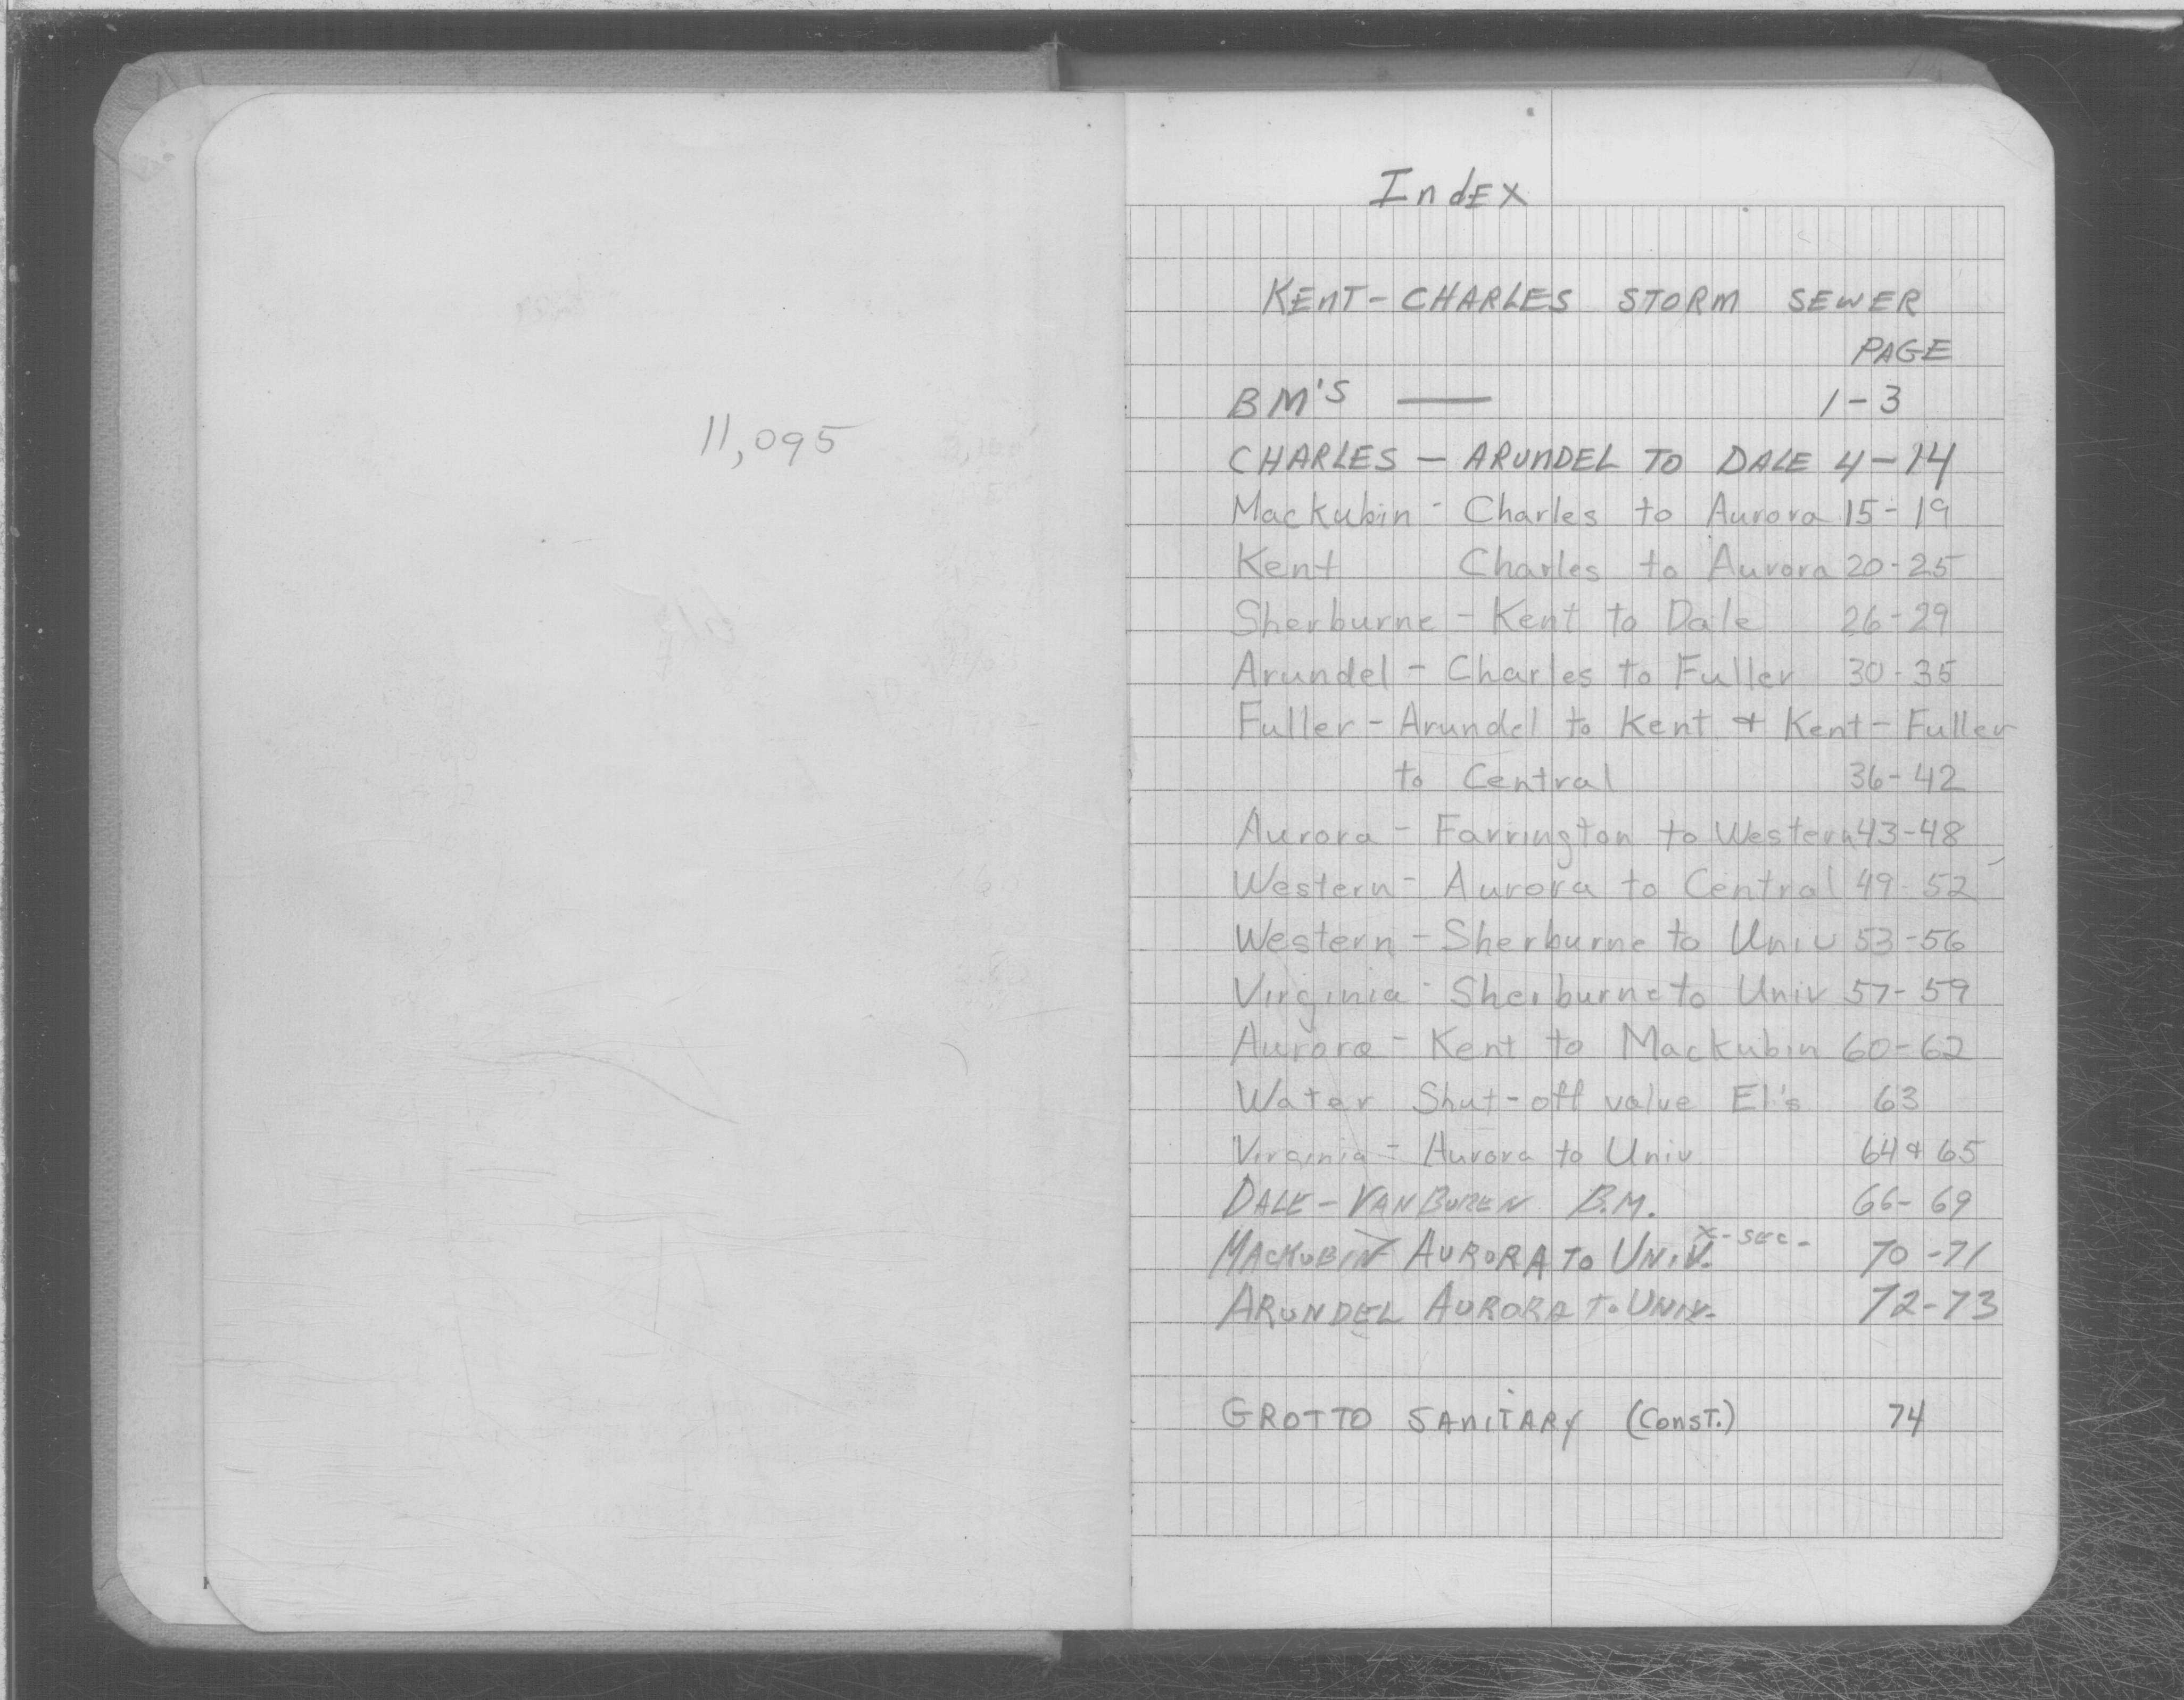 11,095
Index
KENT - CHARLES STORM SEWER
PAGE
BM'S — 1-3
CHARLES - ARUNDEL TO DALE 4-14
Mackubin - Charles to Aurora 15-19
Kent Charles to Aurora 20-25
Sherburne - Kent to Dale 26-29
Arundel - Charles to Fuller 30-35
Fuller - Arundel to Kent & Kent - Fuller
to Central 36-42
Aurora - Farrington to Western 43-48
Western - Aurora to Central 49-52
Western - Sherburne to Univ 53-56
Virginia - Sherburne to Univ 57-59
Aurora - Kent to Mackubin 60-62
Water Shut-off valve El's 63
Virginia - Aurora to Univ 64 & 65
DALE - VAN BUREN B.M. 66-69
MACKUBIN AURORA TO UNIV. X-sec- 70-71
ARUNDEL AURORA To UNIV. 72-73
GROTTO SANITARY (CONST.) 74